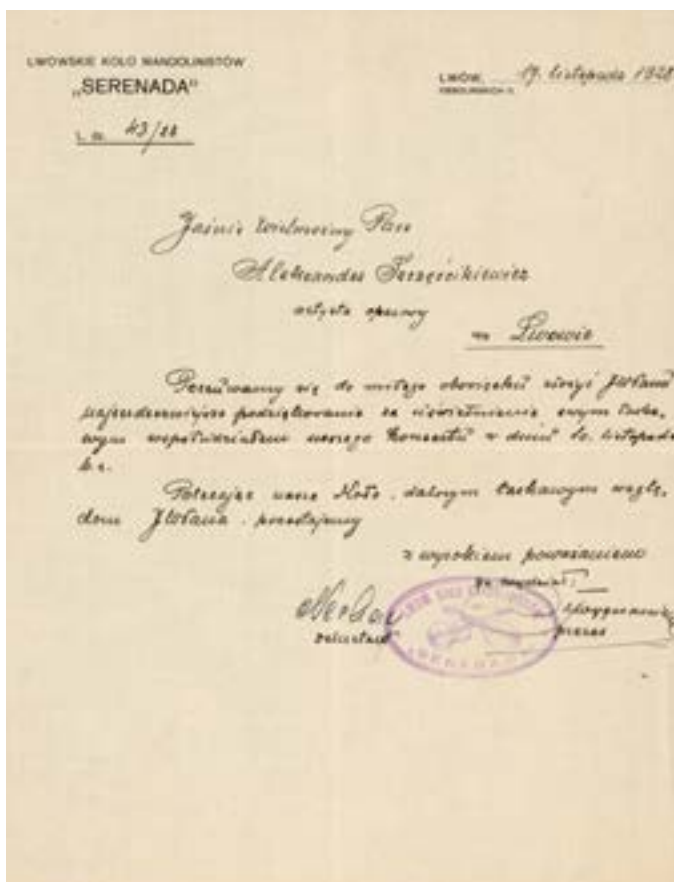 LWOWSKIE KOŁO MANDOLINISTÓW
„SERENADA"
LWÓW, 19. listopada 1928
L. 43/28
Jaśnie Wielmożny Pan
Aleksander
artysta operowy
we Lwowie
Poczuwamy się do miłego obowiązku złożyć JWPanu
najserdeczniejsze podziękowanie za uświetnienie swym łaska,
wym współudziałem naszego Koncertu w dniu 10. listopada
b.r.
Polecając nasze Koło, dalszym łaskawym wzglę,
dom JWPana, pozostajemy
z wysokiem poważaniem
za wydział:
sekretarz
prezes
SERENADA